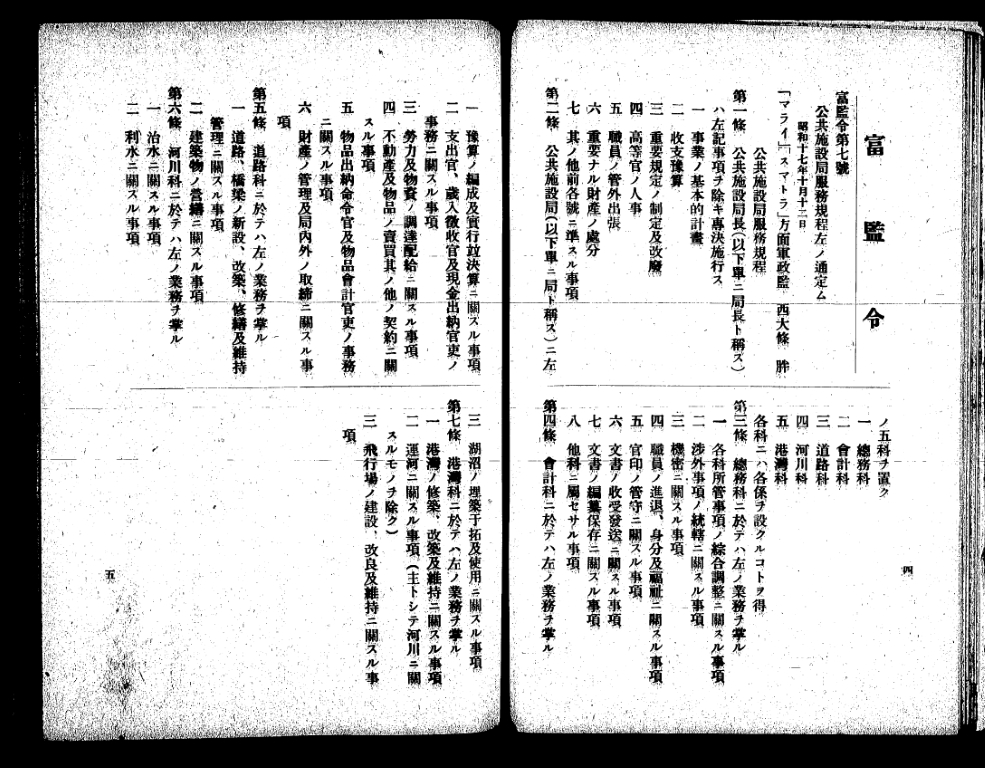 富監令
富監令第七號
公共施設局服務規程左ノ通定ム
昭和十七年十月十二日
「マライ」「スマトラ」方面軍政監 西大條 胖
公共施設局服務規程
第一條 公共施設局長(以下單ニ局長ト稱ス)
ハ左記事項ヲ除キ專決施行ス
一 事業ノ基本的計畫
二 收支豫算
三 重要規定ノ制定及改廢
四 高等官ノ人事
五 職員ノ管外出張
六 重要ナル財產ノ處分
七 其ノ他前各號ニ準スル事項
第二條 公共施設局(以下單ニ局ト稱ス)ニ左
ノ五科ヲ置ク
一 總務科
二 會計科
三 道路科
四 河川科
五 港灣科
各科ニハ各係ヲ設クルコトヲ得
第三條 總務科ニ於テハ左ノ業務ヲ掌ル
一 各科所管事項ノ綜合調整ニ關スル事項
二 涉外事項ノ統轄ニ關スル事項
三 機密ニ關スル事項
四 職員ノ進退、身分及福祉ニ關スル事項
五 官印ノ管守ニ關スル事項
六 文書ノ收受發送ニ關スル事項
七 文書ノ編纂保存ニ關スル事項
八 他科ニ屬セサル事項
第四條 會計科ニ於テハ左ノ業務ヲ掌ル
四
一 豫算ノ編成及實行竝決算ニ關スル事項
二 支出官、歲入徵收官及現金出納官吏ノ
事務ニ關スル事項
三 勞力及物資ノ調達配給ニ關スル事項
四 不動產及物品ノ賣買其ノ他ノ契約ニ關
スル事項
五 物品出納命令官及物品會計官吏ノ事務
ニ關スル事項
六 財產ノ管理及局內外ノ取締ニ關スル事
項
第五條 道路科ニ於テハ左ノ業務ヲ掌ル
一 道路、橋梁ノ新設、改築、修繕及維持
管理ニ關スル事項
二 建築物ノ營繕ニ關スル事項
第六條 河川科ニ於テハ左ノ業務ヲ掌ル
一 治水ニ關スル事項
二 利水ニ關スル事項
三 湖沼ノ埋築干拓及使用ニ關スル事項
第七條 港灣科ニ於テハ左ノ業務ヲ掌ル
一 港灣ノ修築、改築及維持ニ關スル事項
二 運河ニ關スル事項(主トシテ河川ニ關
スルモノヲ除ク)
三 飛行場ノ建設、改良及維持ニ關スル事
項
五